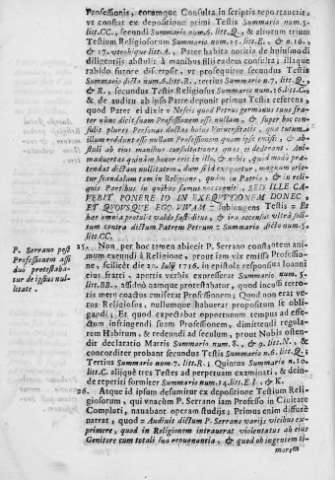 Professionis, eorumque Consulta in scriptis reportauerit,
vt constat ex depositione primi Testis Summario num.5.
litt.CC., secundi Summario num.6. litt.Q., & aliorum trium
Testium Religiosorum Summario num.15. litt.E., & n.16.,
& 17. vtrobique litt.A., Pater habita notitia de huiusmodi
diligentijs abstulit à manibus filij eadem consulta; illaque
rabido furore discerpsit, vt prosequitur secundus Testis
Summario dicto num.6. litt.R., tertius Summario n.7. litt.Q.,
& R., secundus Testis Religiosus Summario num.16. litt.C.
& de auditu ab ipso Patre deponit primus Testis referens,
quod Pater ei dixit
tuam Professionem esse nullam, & super hoc
plures Personas doctas huius Vniversitatis, quæ
illam reddunt esse nullam Professionem quam ipse emisit, &
tum dictam nullitatem, dum id exequetur, magnum oriretur
scandalum tam in Religione, quàm in Patria, & in reliquis
Partibus in quibus famus SED ILLE CA-
VEBIT PONERE ID IN EXEQVTIONEM DONEC
ET QVOVSQVE EGO VIVAM: Subiungens Testis = Et
hæc omnia protulit valde fastiditus, &
tum contra dictum Patrem Petrum = Summario dicto num.5.
litt.CC.
P. Serrano post
Professionem assi
duò protestaba-
tur de ipsius nul-
litate.
25. Non, per hoc tamen abiecit P. Serrano constantem ani-
mum exeundi à Religione, prout iam vix emissa Professio-
ne, scilicet die 22. Iulij 1716. in epistola responsiua Ioanni
eius fratri, apertis verbis expresserat Summario num. 5.
litt.BB., assiduò namque protestabatur, quod incussi terro-
res meri coactus emiserat Professionem; Quod non erat ve-
rus Religiosus, nullumque habuerat propositum se obli-
gandi; Et quod expectabat opportunum tempus ad effe-
ctum infringendi suam Professionem, dimittendi regula-
rem Habitum, & redeundi ad sæculum, prout Nobis osten-
dit declaratio Matris Summario num. 8., & 9. litt.N., &
concorditer probant secundus Testis Summario n.6. litt.Q.
Tertius Summario num.7. litt.R., Quintus Summario n.10.
litt.C. alijque tres Testes ad perpetuam examinati, & dein-
de repetiti formiter Summario num.14. litt.E.I., & K.
26. Atque id ipsum desumitur ex depositione Testium Reli-
giosorum, qui vnacum P. Serrano iam Professo in Ciuitate
Compluti, nauabant operam studijs; Primus enim differtè
narrat, quod = Audiuit dictum P. Serrano varijs vicibus ex-
primere, quod in Religionem intrauerat violentatus ab eius
Genitore cum totali sua repugnantia, & quod ab ingentem ti-
morem